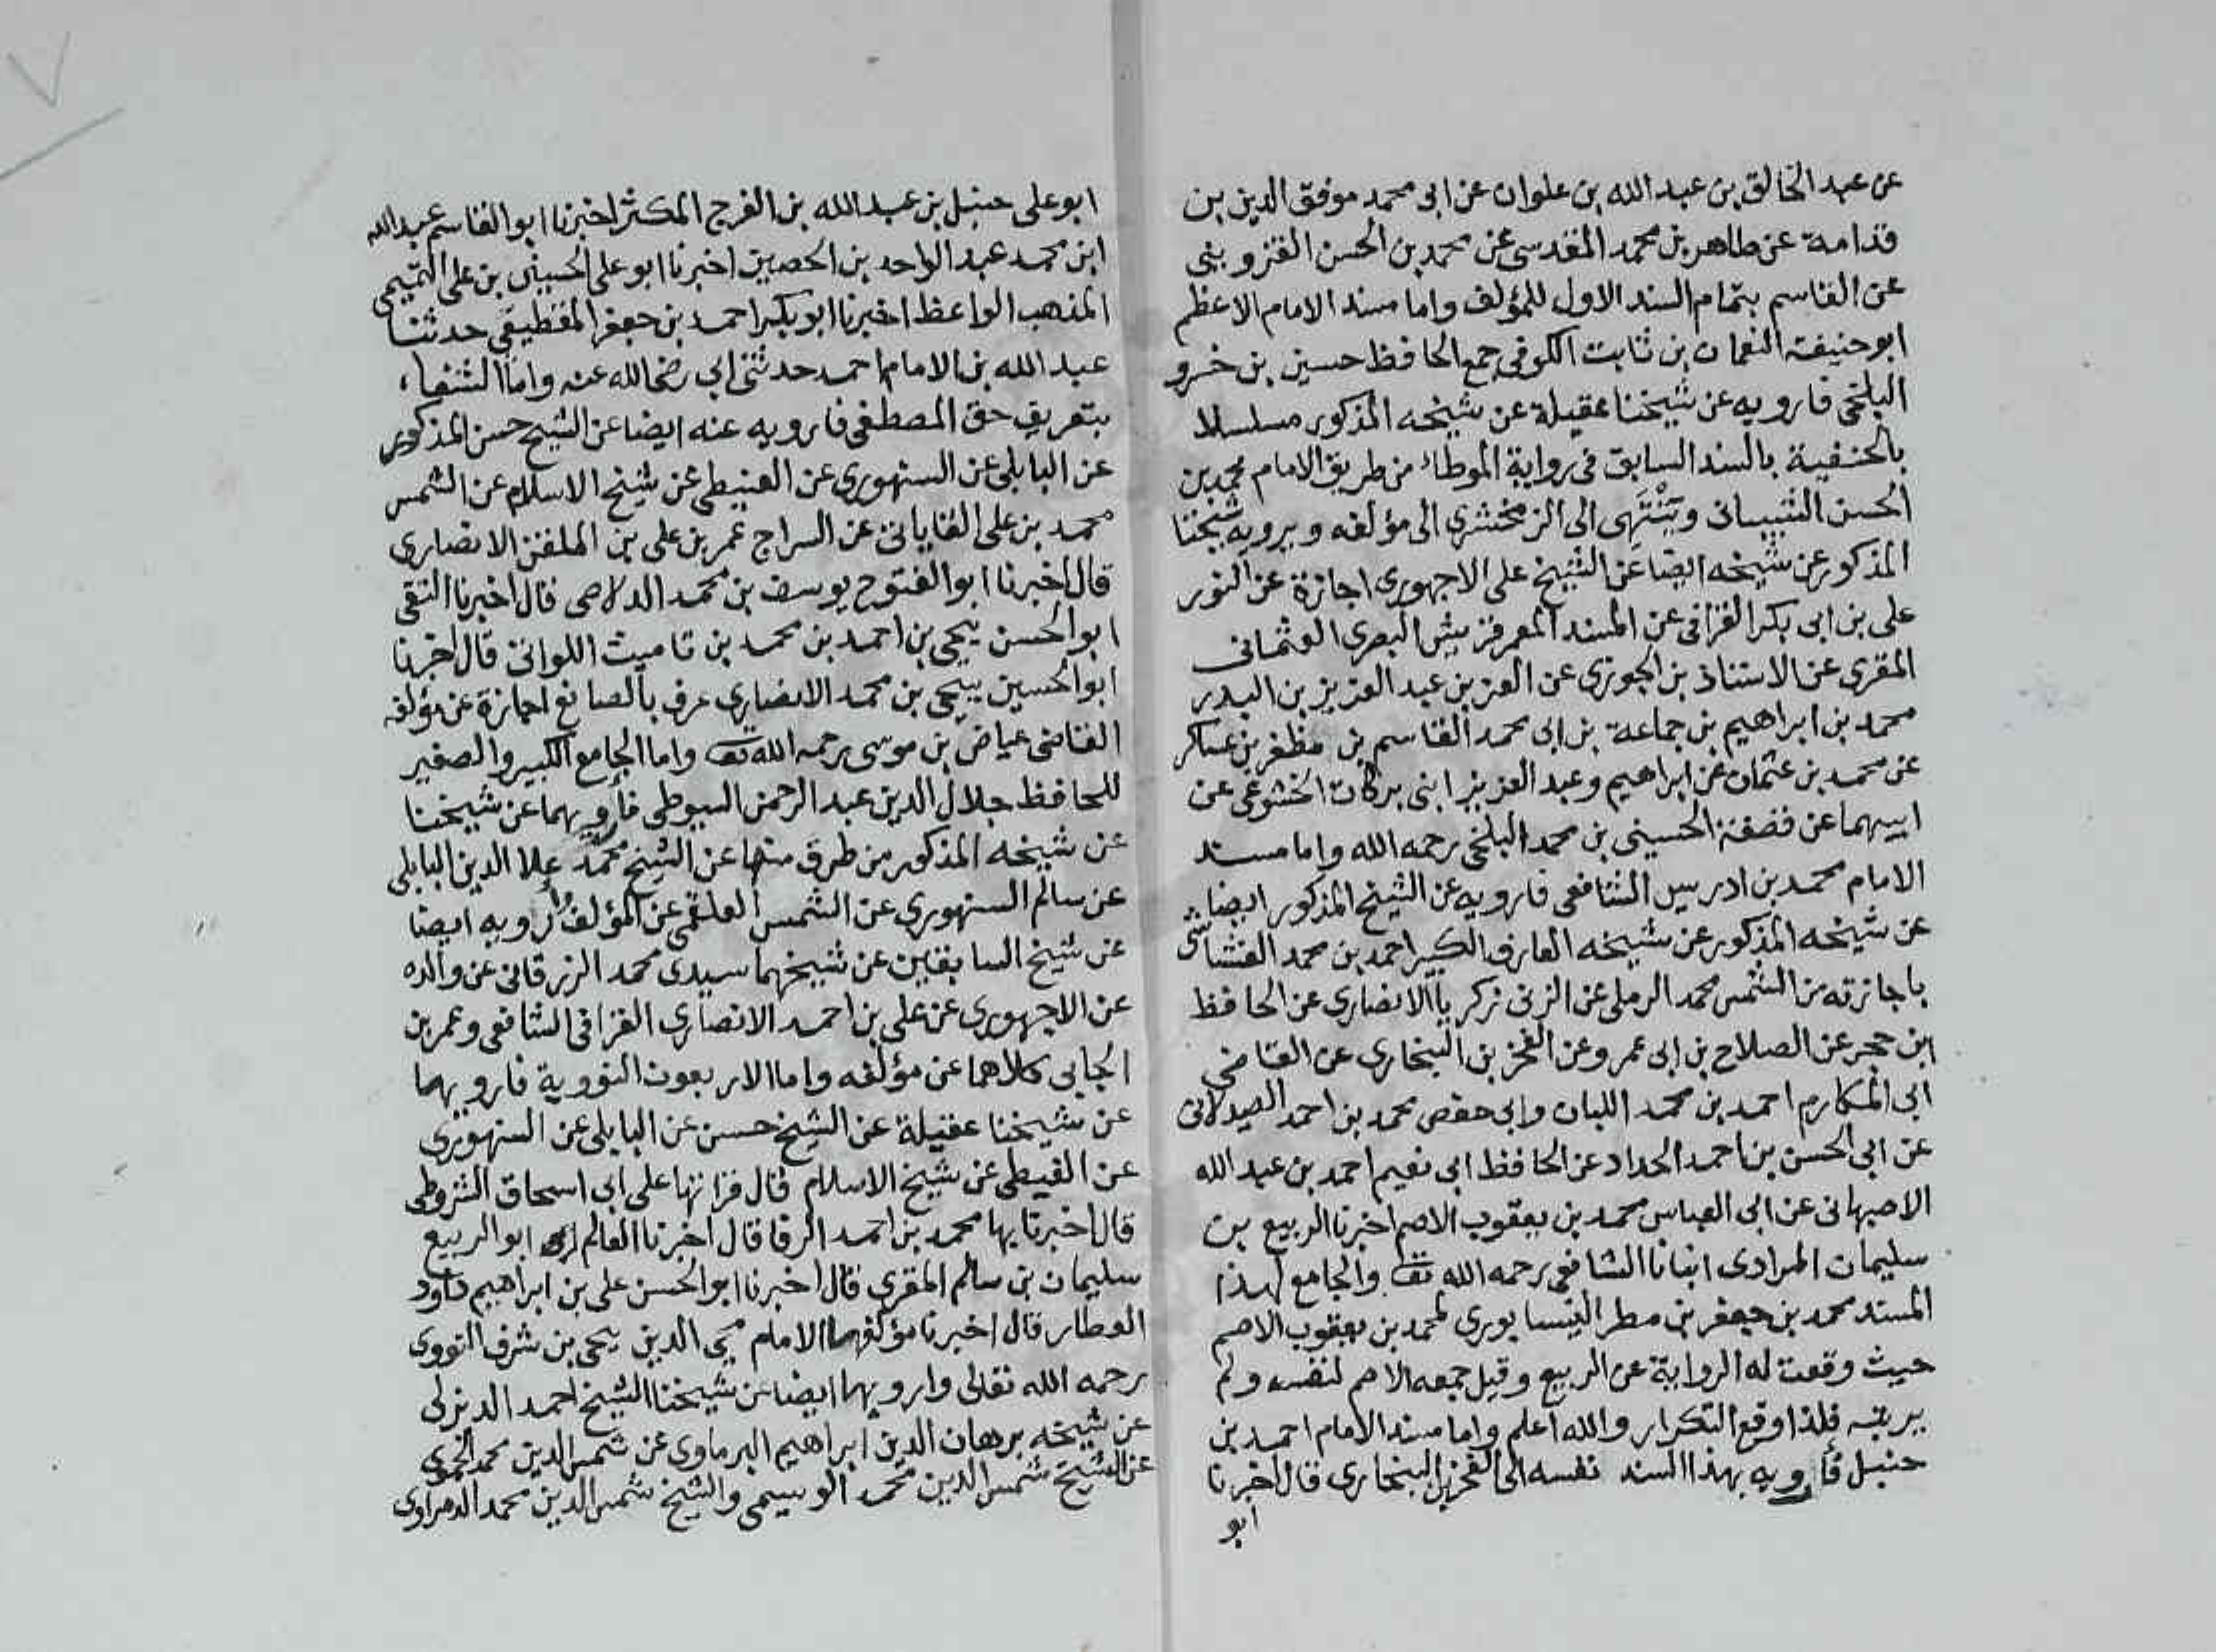 عن عبد الخالق بن عبد الله بن علوان عن ابى محمد موفق الدين بن
قدامة عن طاهر بن محمد المقدسى عن محمد بن الحسن القزوينى
عن القاسم بتمام السند الاول للمؤلف واما مسند الامام الاعظم
ابو حنيفة النعمان بن ثابت الكوفى جمع الحافظ حسين بن خسرو
البلخى فارويه عن شيخنا عقيلة عن شيخه المذكور مسلسلا
بالحنفية بالسند السابق فى رواية الموطاء من طريق الامام محمد بن
الحسن الشيبانى وينتهى الى الزمخشرى الى مؤلفه ويرويه شيخنا
المذكور عن شيخه ايضا عن الشيخ على الاجهورى اجازة عن النور
على بن ابى بكر القرافى عن المسند المعمر قريش البصرى العثمانى
المقرى عن الاستاذ بن الجوزى عن العز بن عبد العزيز بن البدر
محمد بن ابراهيم بن جماعة بن ابى محمد القاسم بن مظفر بن عساكر
عن محمد بن عثمان عن ابراهيم وعبد العزيز ابنى بركات الخشوعى عن
ابيهما عن الحسينى بن محمد البلخى رحمه الله واما مسند
الامام محمد بن ادريس الشافعى فارويه عن الشيخ المذكور ايضا
عن شيخه المذكور عن شيخه العارف الكبير احمد بن محمد القشاشى
باجازته من الشمس محمد الرملى عن الزين زكريا الانصارى عن الحافظ
ابن حجر عن الصلاح بن ابى عمرو عن الفخر بن البخارى عن القاضى
ابى المكارم احمد بن محمد اللبان وابى حفص محمد بن احمد الصيدلانى
عن ابى الحسن بن احمد الحداد عن الحافظ ابى نعيم احمد بن عبد الله
الاصبهانى عن ابى العباس محمد بن يعقوب الاصم اخبرنا الربيع بن
سليمان المرادى انبانا الشافعى رحمه الله تعا والجامع لهذا
المسند محمد بن جعفر بن مطر النيسابورى لمحمد بن يعقوب الاصم
حيث وقعت له الرواية عن الربيع وقيل جمعه الاصم لنفسه ولم
يرتبه فلذا وقع التكرار والله اعلم واما مسند الامام احمد بن
حنبل فأرويه بهذا السند نفسه الى الفخر بن البخارى قال اخبرنا
ابو
ابو على حنبل بن عبد الله بن الفرج المكثر اخبرنا ابو القاسم عبد الله
ابن محمد عبد الواحد بن الحصين اخبرنا ابو على الحسينى بن على التميمى
المذهب الواعظ اخبرنا ابو بكر احمد بن جعفر القطيعى حدثنا
عبد الله بن الامام احمد حدثنى ابي رضى الله عنه واما الشفاء
بتعريف حق المصطفى فارويه عنه ايضا عن الشيخ حسن المذكور
عن البابلى عن السنهورى عن الغيطى عن شيخ الاسلام عن الشمس
محمد بن على القاياتى عن السراج عمر بن على بن الملقن الانصارى
قال اخبرنا ابو الفتوح يوسف بن محمد الدلاصى قال اخبرنا التقى
ابو الحسن يحيى بن احمد بن محمد بن تاميت اللواتى قال اخبرنا
ابو الحسين يحيى بن محمد الانصارى عرف بالصائغ اجازة عن مؤلفه
القاضى عياض بن موسى رحمه الله تعا واما الجامع الكبير والصغير
للحافظ جلال الدين عبد الرحمن السيوطى فأرويهما عن شيخنا
عن شيخه المذكور من طرق منها عن الشيخ محمد علا الدين البابلى
عن سالم السنهورى عن الشمس العلقمى عن المؤلف وارويه ايضا
عن شيخ السابقين عن شيخهما سيدى محمد الزرقانى عن والده
عن الاجهورى عن على بن احمد الانصارى القرافى الشافعى وعمر بن
الجابى كلاهما عن مؤلفه واما الاربعون النووية فارويهما
عن شيخنا عقيلة عن الشيخ حسن عن البابلى عن السنهورى
عن الغيطى عن شيخ الاسلام قال قراتها على ابى اسحاق الشروطى
قال اخبرنا بها محمد بن احمد الرفا قال اخبرنا العالم ابو الربيع
سليمان بن سالم المقرى قال اخبرنا ابو الحسن على بن ابراهيم داود
العطار قال اخبرنا مؤلفهما الامام محيى الدين يحيى بن شرف النووى
رحمه الله تعالى وارويهما ايضا عن شيخنا الشيخ احمد الدنزلى
عن شيخه برهان الدين ابراهيم البرماوى عن شمس الدين محمد الحموى
عن الشيخ شمس الدين محمد الوسيمى والشيخ شمس الدين محمد الدمراوى